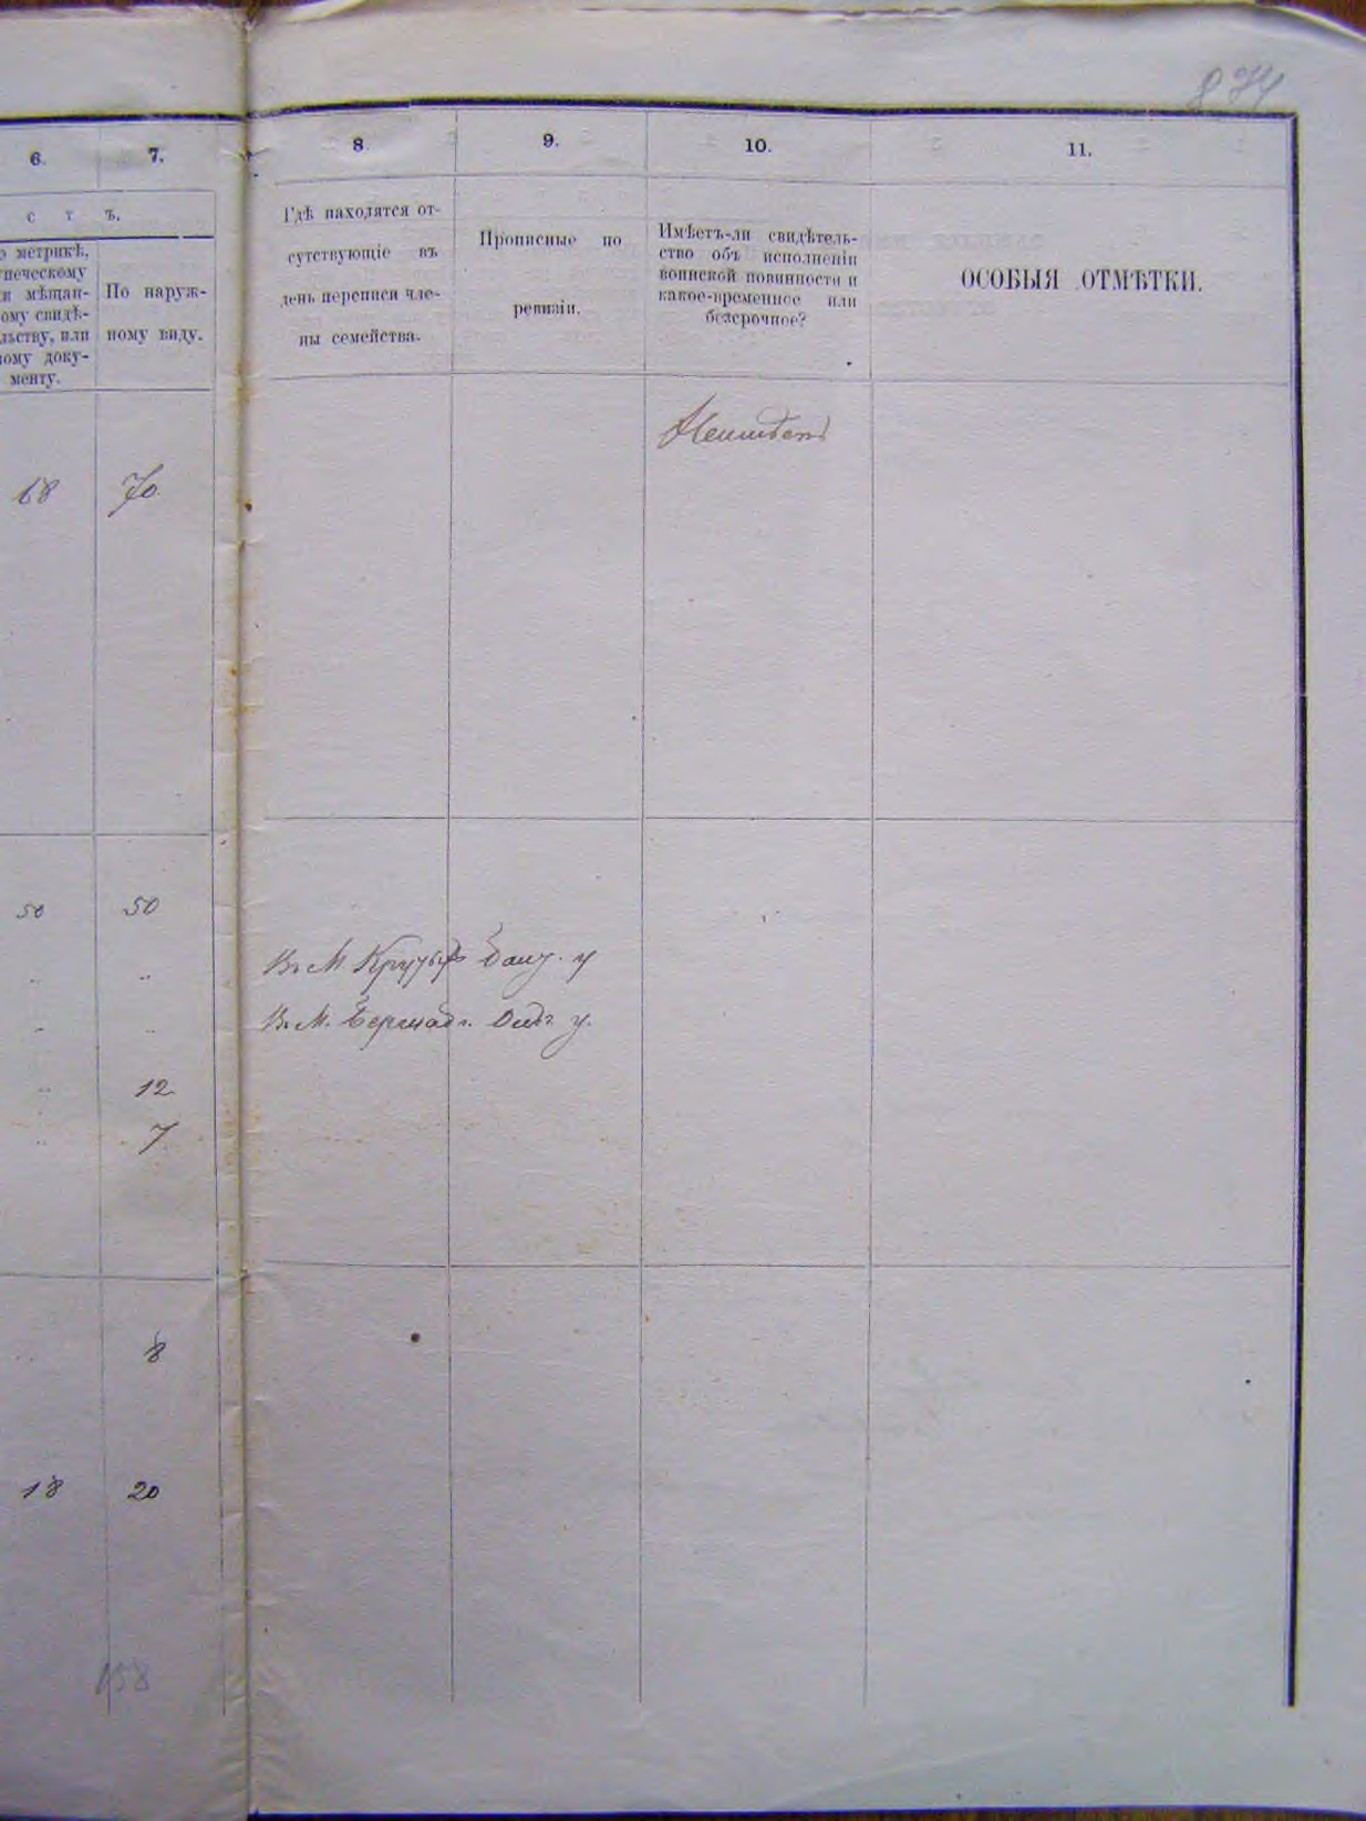 874
6.
7.
8
9.
10.
11.
с т ъ.
о метрикѣ,
печескому
и мѣщан-
ому свидѣ-
льству, или
ному доку-
менту.
По наруж-
ному виду.
Гдѣ находятся от-
сутствующіе въ
день переписи чле-
ны семейства.
Прописные по
ревизіи.
Имѣетъ-ли свидѣтель-
ство объ исполненіи
воинской повинности и
какое-временное или
безсрочное?
ОСОБЫЯ ОТМѢТКИ.
68 70
50 50
Въ М
Въ М. у.
12
7
8
18 20
158